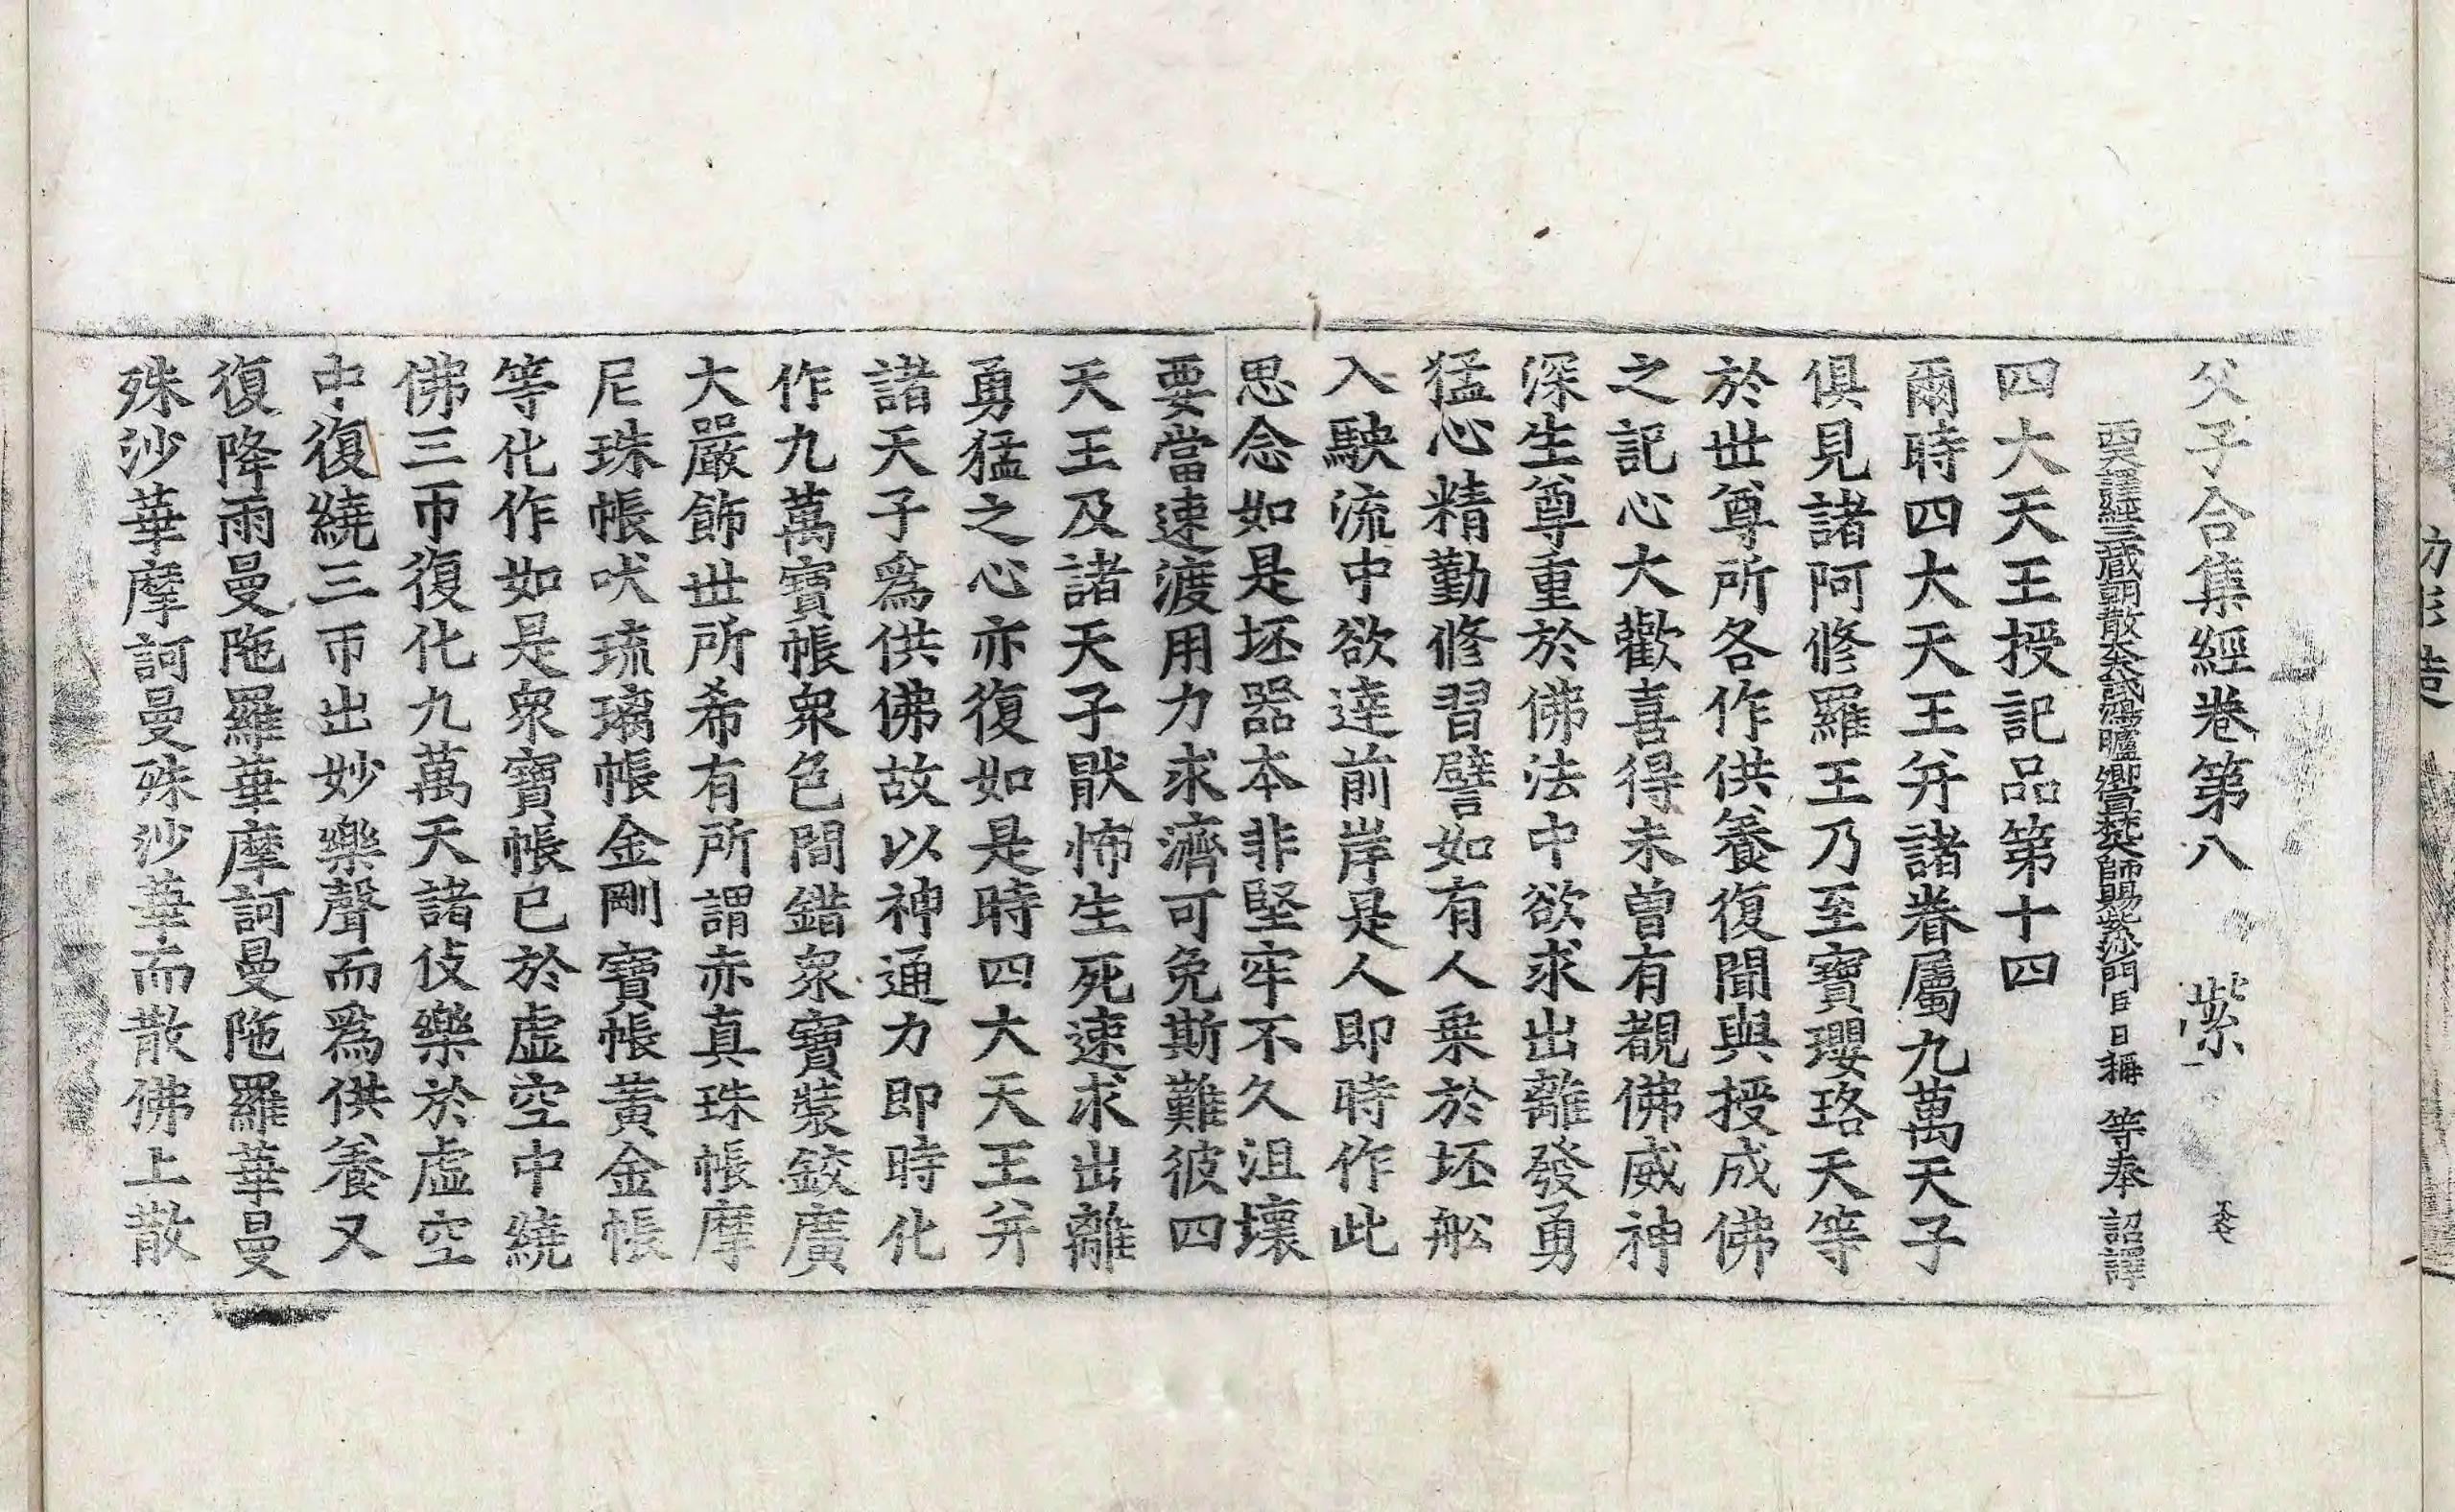 父子合集經卷第八 紫
西天譯經三藏朝散大夫試鴻臚卿宣梵大師賜紫沙門臣日稱 等奉 詔譯
四大天王授記品第十四
爾時四大天王并諸眷屬九萬天子
俱見諸阿修羅王乃至寶瓔珞天等
於世尊所各作供養復聞與授成佛
之記心大歡喜得未曾有覩佛威神
深生尊重於佛法中欲求出離發勇
猛心精勤修習譬如有人乗於坯舩
入駛流中欲達前岸是人即時作此
思念如是坯器本非堅牢不久沮壞
要當速渡用力求濟可免斯難彼四
天王及諸天子猒怖生死速求出離
勇猛之心亦復如是時四大天王并
諸天子爲供佛故以神通力即時化
作九萬寶帳衆色間錯衆寶裝鉸廣
大嚴飾世所希有所謂赤真珠帳摩
尼珠帳吠琉璃帳金剛寶帳黃金帳
等化作如是衆寶帳已於虛空中繞
佛三帀復化九萬天諸伎樂於虛空
中復繞三帀出妙樂聲而爲供養又
復降雨曼陁羅華摩訶曼陁羅華曼
殊沙華摩訶曼殊沙華而散佛上散